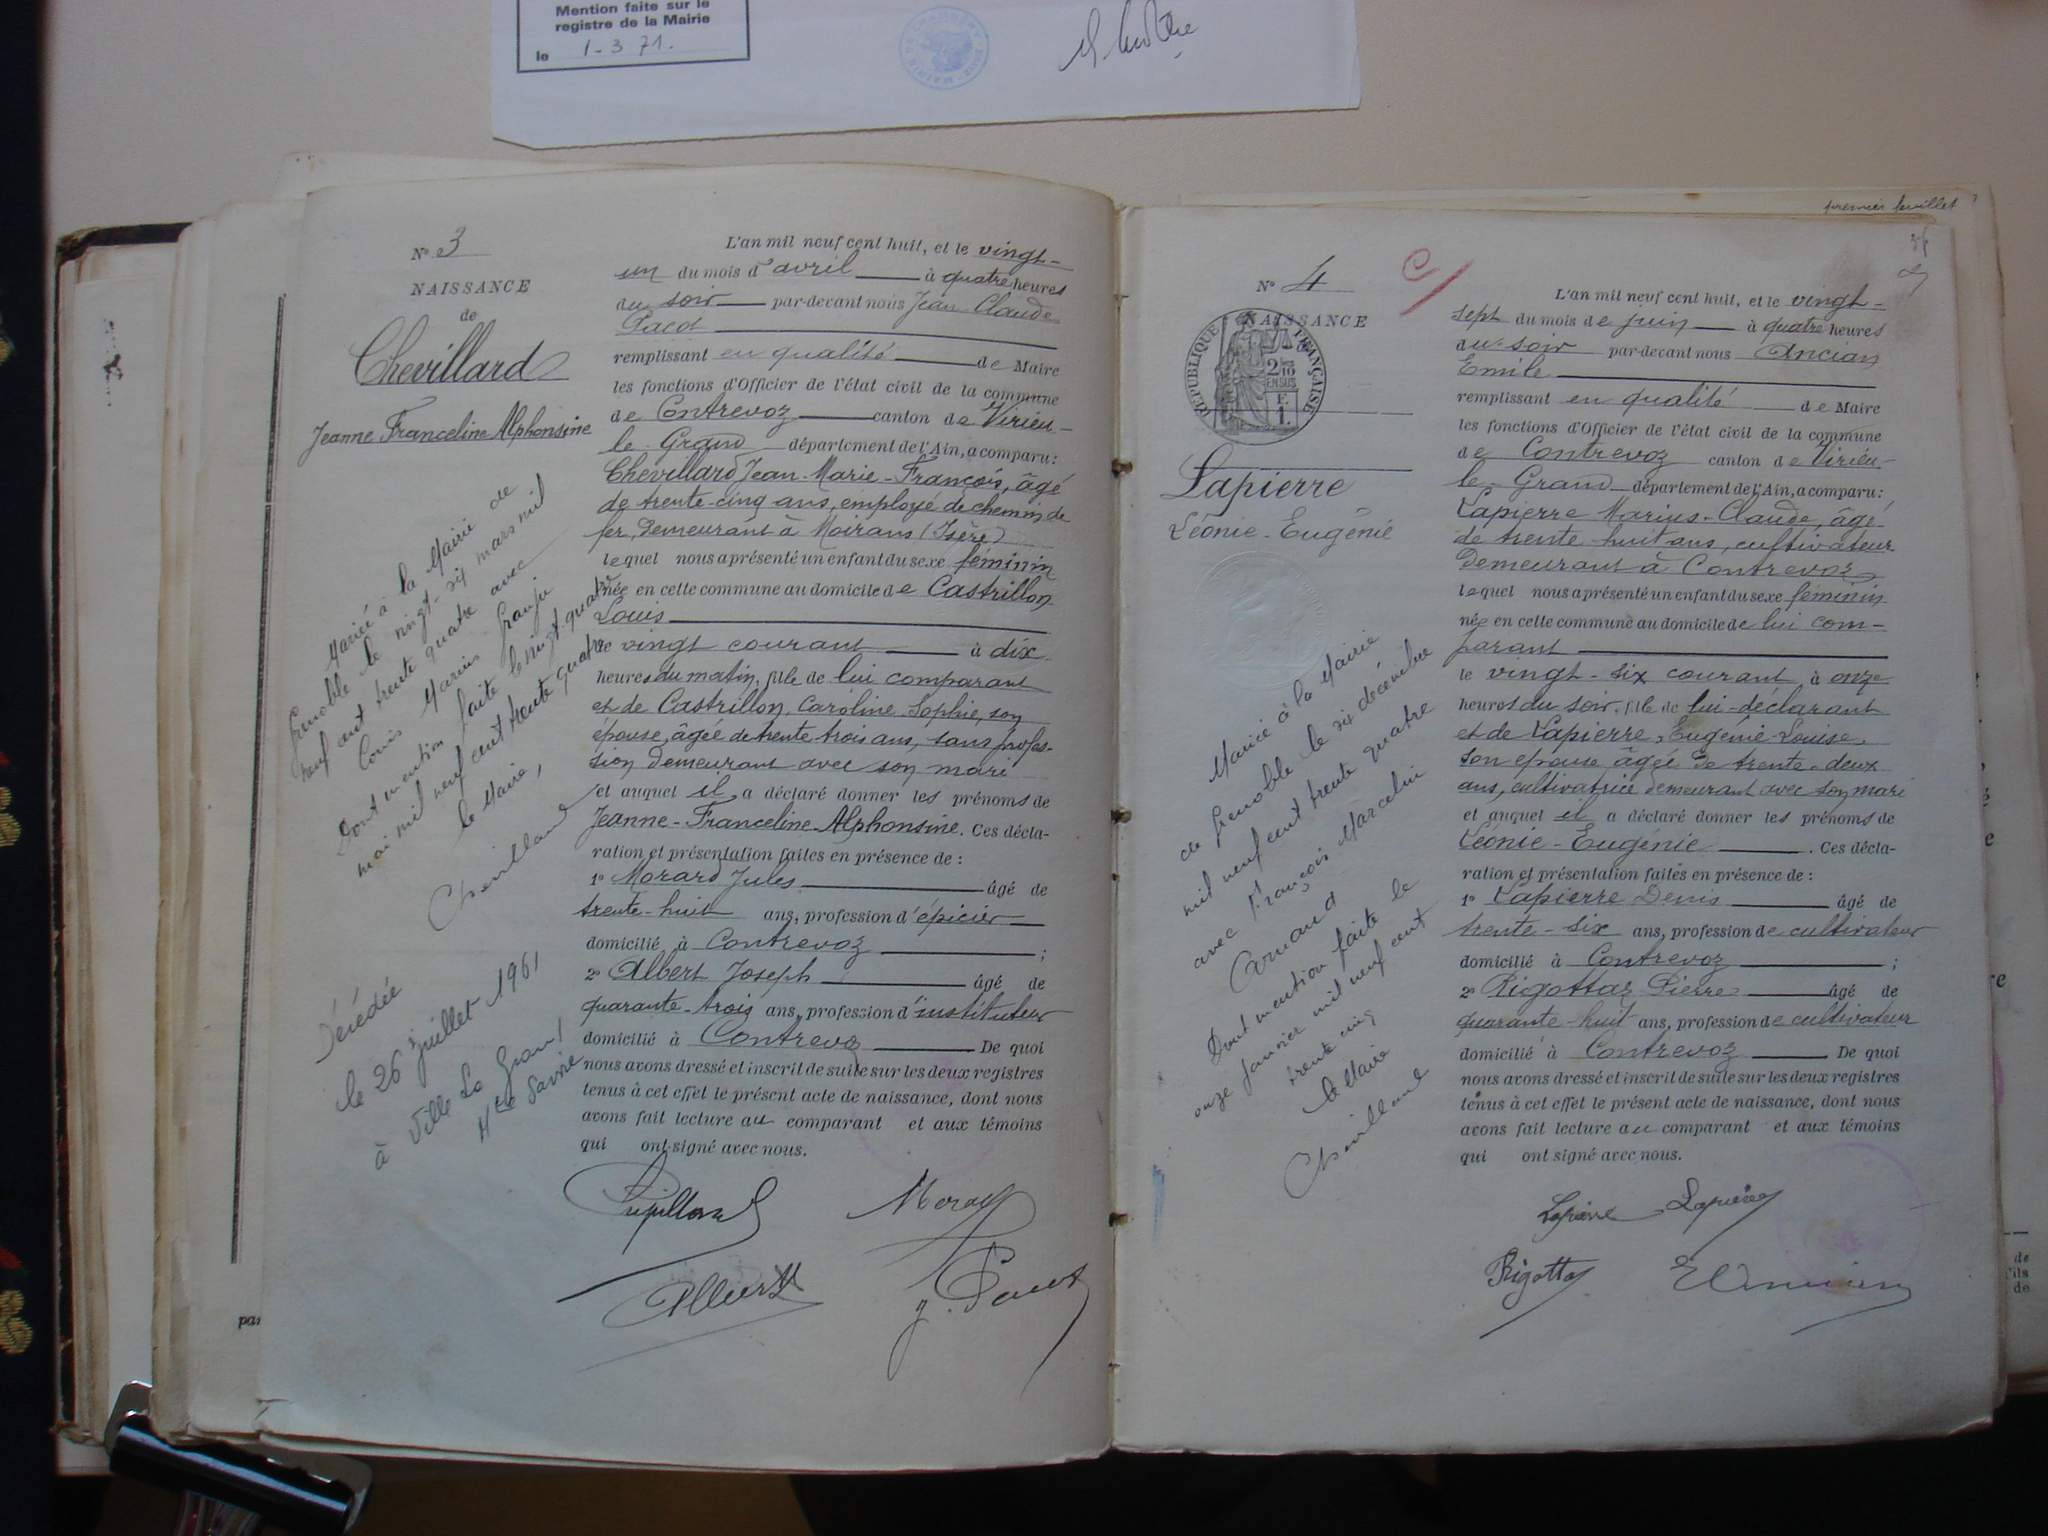 Mention faite sur le
registre de la Mairie
le 1-3 71.
N° 3
NAISSANCE
de
Chevillard
Jeanne Franceline Alphonsine
Mariée à la Mairie de
Grenoble le vingt-six mars mil
neuf cent trente quatre avec
Louis Marius
Dont mention faite le vingt quatre
mai mil neuf cent trente quatre
le Maire,
Chevillard
Décédée
le 26 juillet 1961
à Ville La Grand
Hte Savoie
L'an mil neuf cent huit, et le vingt-
un du mois d'avril à quatre heures
du soir par-devant nous Jean Claude
Pacot
remplissant en qualité de Maire
les fonctions d'Officier de l'état civil de la commune
de Contrevoz canton de Virieu-
le-Grand département de l'Ain, a comparu:
Chevillard Jean-Marie-François, âgé
de trente-cinq ans, employé de chemin de
fer, demeurant à Moirans (Isère)
lequel nous a présenté un enfant du sexe féminin
née en cette commune au domicile de Castrillon
Louis
le vingt courant à dix
heures du matin, fille de lui comparant
et de Castrillon, Caroline Sophie, son
épouse, âgée de trente trois ans, sans profes-
sion demeurant avec son mari
et auquel il a déclaré donner les prénoms de
Jeanne-Franceline-Alphonsine. Ces décla-
ration et présentation faites en présence de :
1° Morard Jules âgé de
trente-huit ans, profession d'épicier
domicilié à Contrevoz ;
2° Albert Joseph âgé de
quarante-trois ans, profession d'instituteur
domicilié à Contrevoz De quoi
nous avons dressé et inscrit de suite sur les deux registres
tenus à cet effet le présent acte de naissance, dont nous
avons fait lecture au comparant et aux témoins
qui ont signé avec nous.
Chevillard Morard
Albert J. Pacot
premier feuillet
N° 4
NAISSANCE
RÉPUBLIQUE FRANÇAISE
Lapierre
Léonie-Eugénie
Mariée à la Mairie
de Grenoble le dix décembre
mil neuf cent trente quatre
avec François Marcelin
Dont mention faite le
onze janvier mil neuf cent
trente cinq
le Maire
Chevillard
L'an mil neuf cent huit, et le vingt-
sept du mois de juin à quatre heures
du soir par-devant nous Ancian
Emile
remplissant en qualité de Maire
les fonctions d'Officier de l'état civil de la commune
de Contrevoz canton de Virieu-
le-Grand département de l'Ain, a comparu:
Lapierre Marius-Claude, âgé
de trente-huit ans, cultivateur
demeurant à Contrevoz
lequel nous a présenté un enfant du sexe féminin
née en cette commune au domicile de lui com-
parant
le vingt-six courant à onze
heures du soir, fille de lui-déclarant
et de Lapierre, Eugénie-Louise,
son épouse âgée de trente-deux
ans, cultivatrice demeurant avec son mari
et auquel il a déclaré donner les prénoms de
Léonie-Eugénie . Ces décla-
ration et présentation faites en présence de :
1° Lapierre Denis âgé de
trente-six ans, profession de cultivateur
domicilié à Contrevoz ;
2° Rigottaz Pierre âgé de
quarante huit ans, profession de cultivateur
domicilié à Contrevoz De quoi
nous avons dressé et inscrit de suite sur les deux registres
tenus à cet effet le présent acte de naissance, dont nous
avons fait lecture au comparant et aux témoins
qui ont signé avec nous.
Lapierre Lapierre
Rigottaz E Ancian